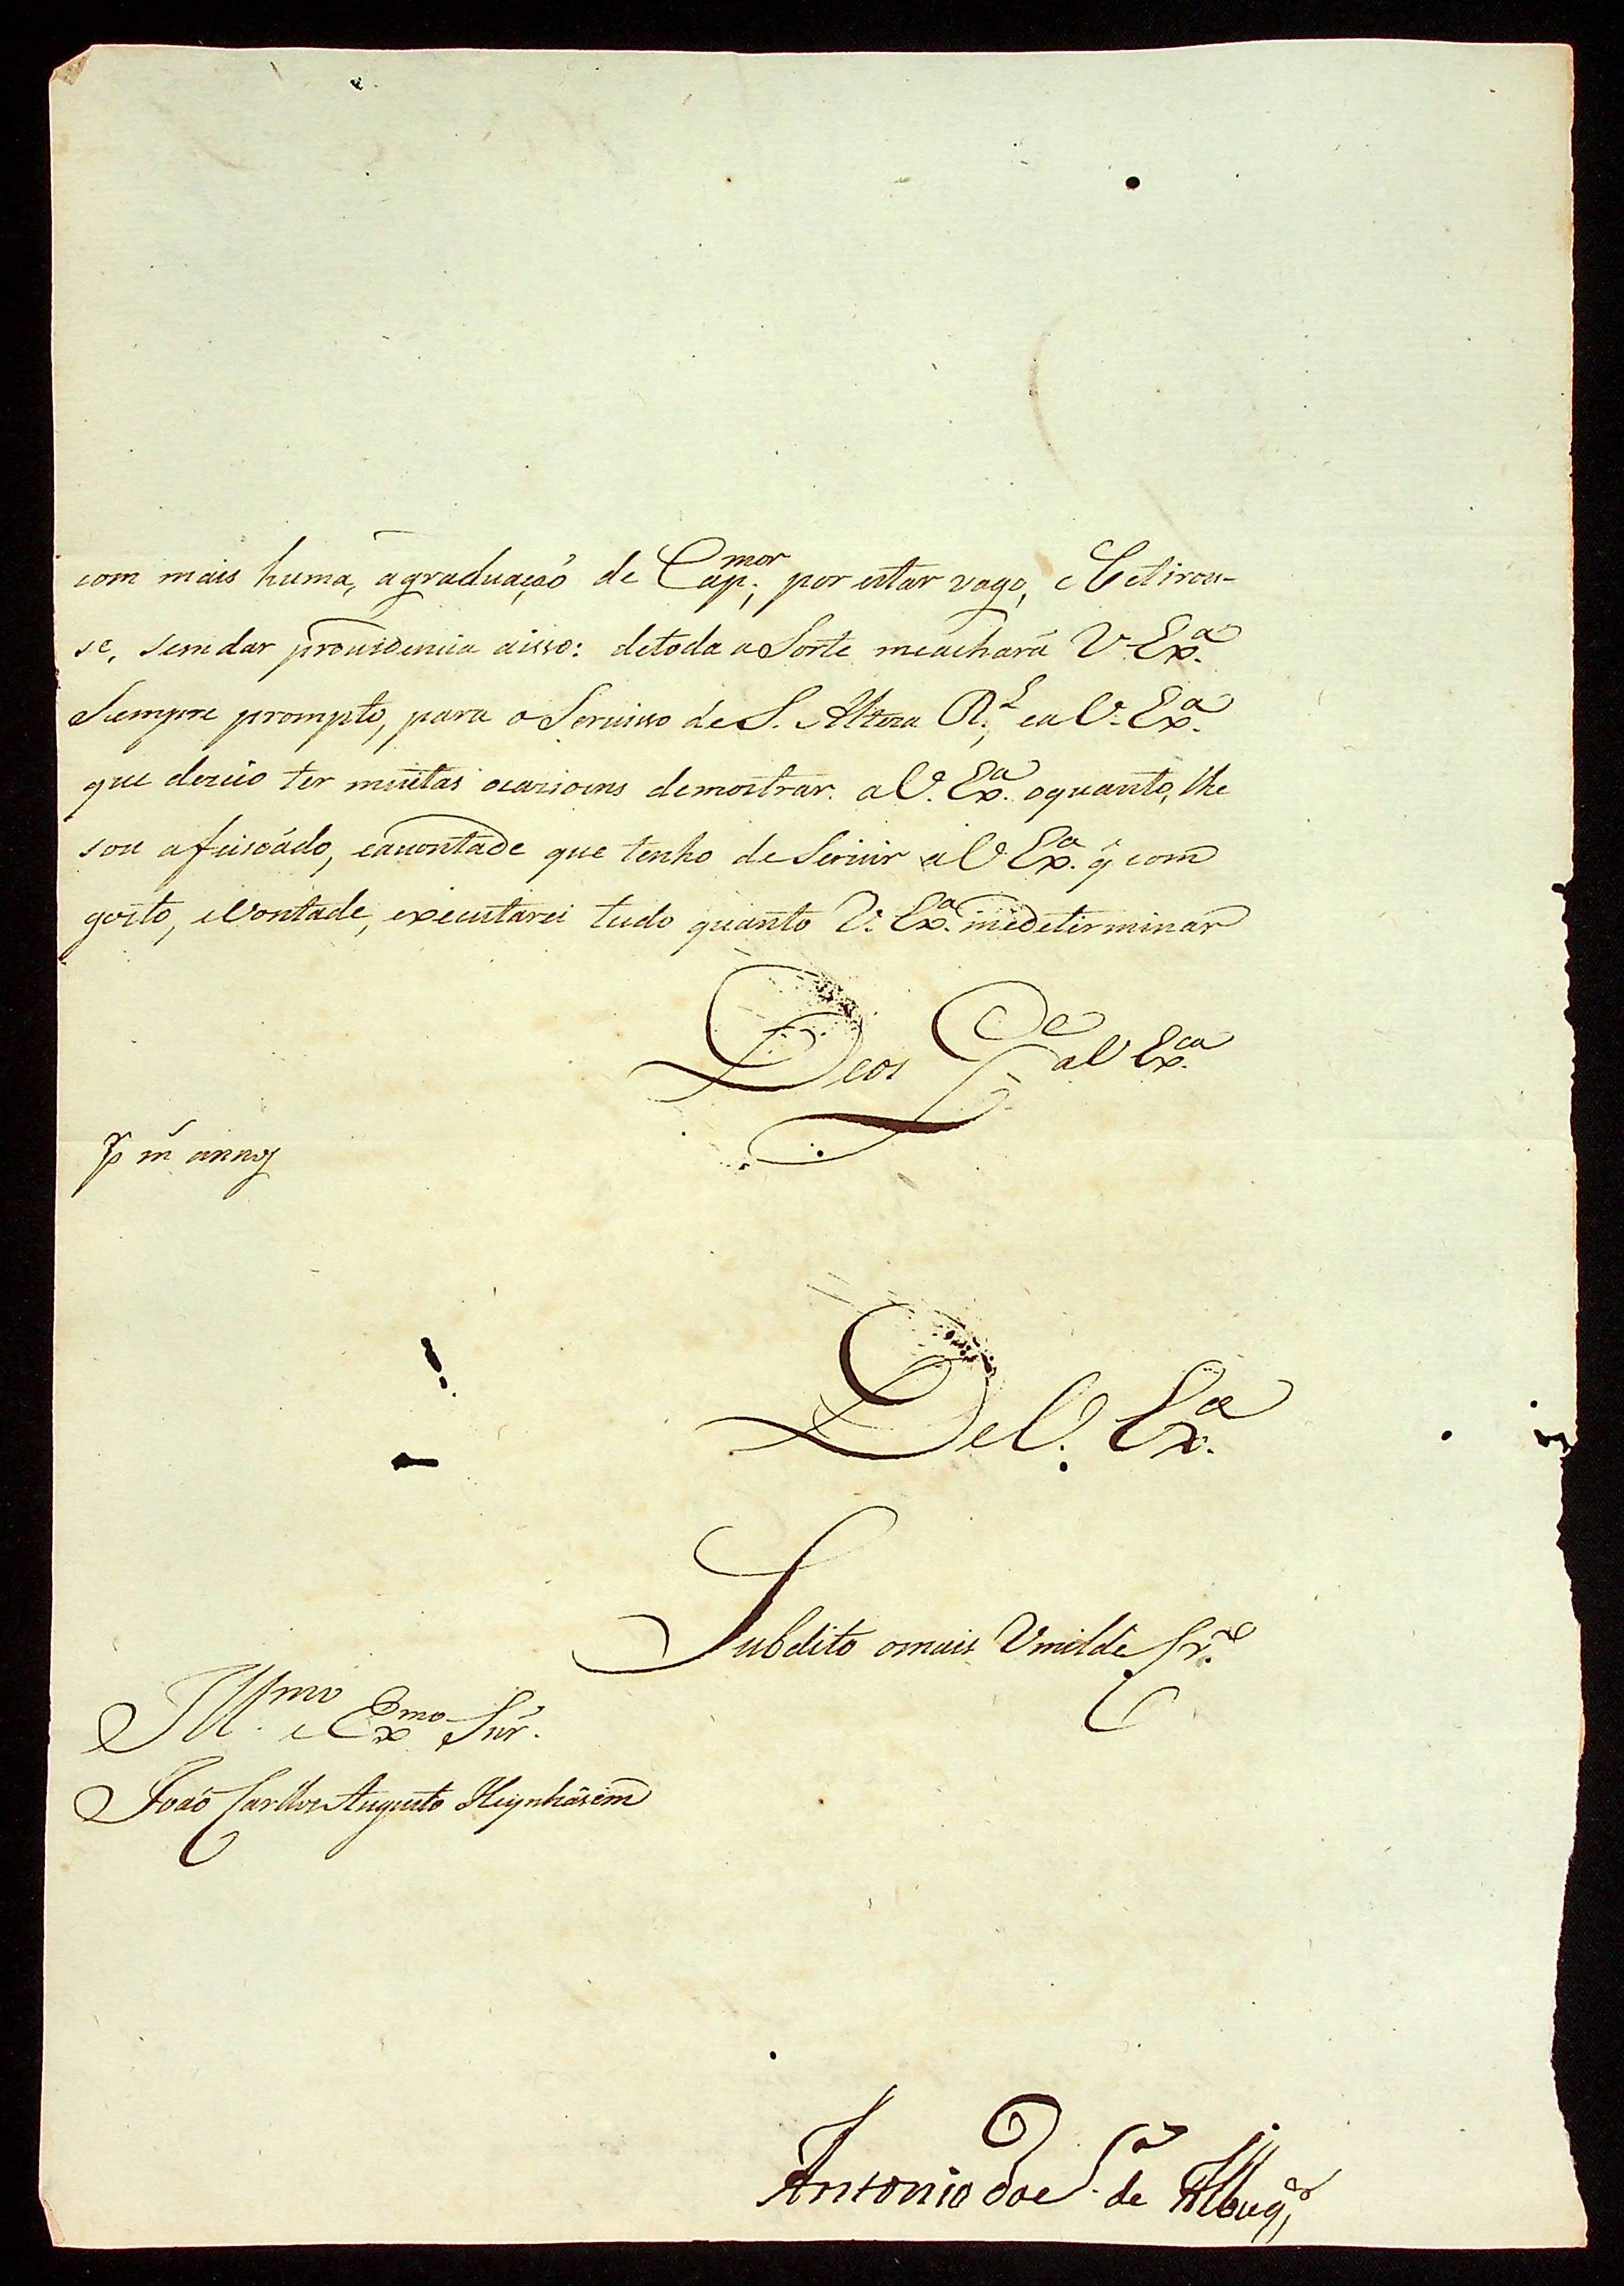 com mais huma, agraduaçaõ de Cap.mor, por estar vago, e Retirou-
se, sem dar providencia aisso: detoda a Sorte meachará V. Exª.
Sempre prompto, para o Servisso de S. Alteza R.l, ea V. Exª.
que dezeio ter muitas ocazioens demostrar. a V. Exª. oquanto, lhe
sou afeisoádo, eavontade que tenho de Servir a V Exª. q̃ com
gosto, e Vontade, executarei tudo quanto V. Exª. medeterminar
Deos Ge a V Exca.
P m annos
De V. Exª.
Subdito omais Vmilde
Illmo. e Exmo Snr.
Joaõ Carllos Augusto Heynhâsem
Antonio da Sª de Albuqe,